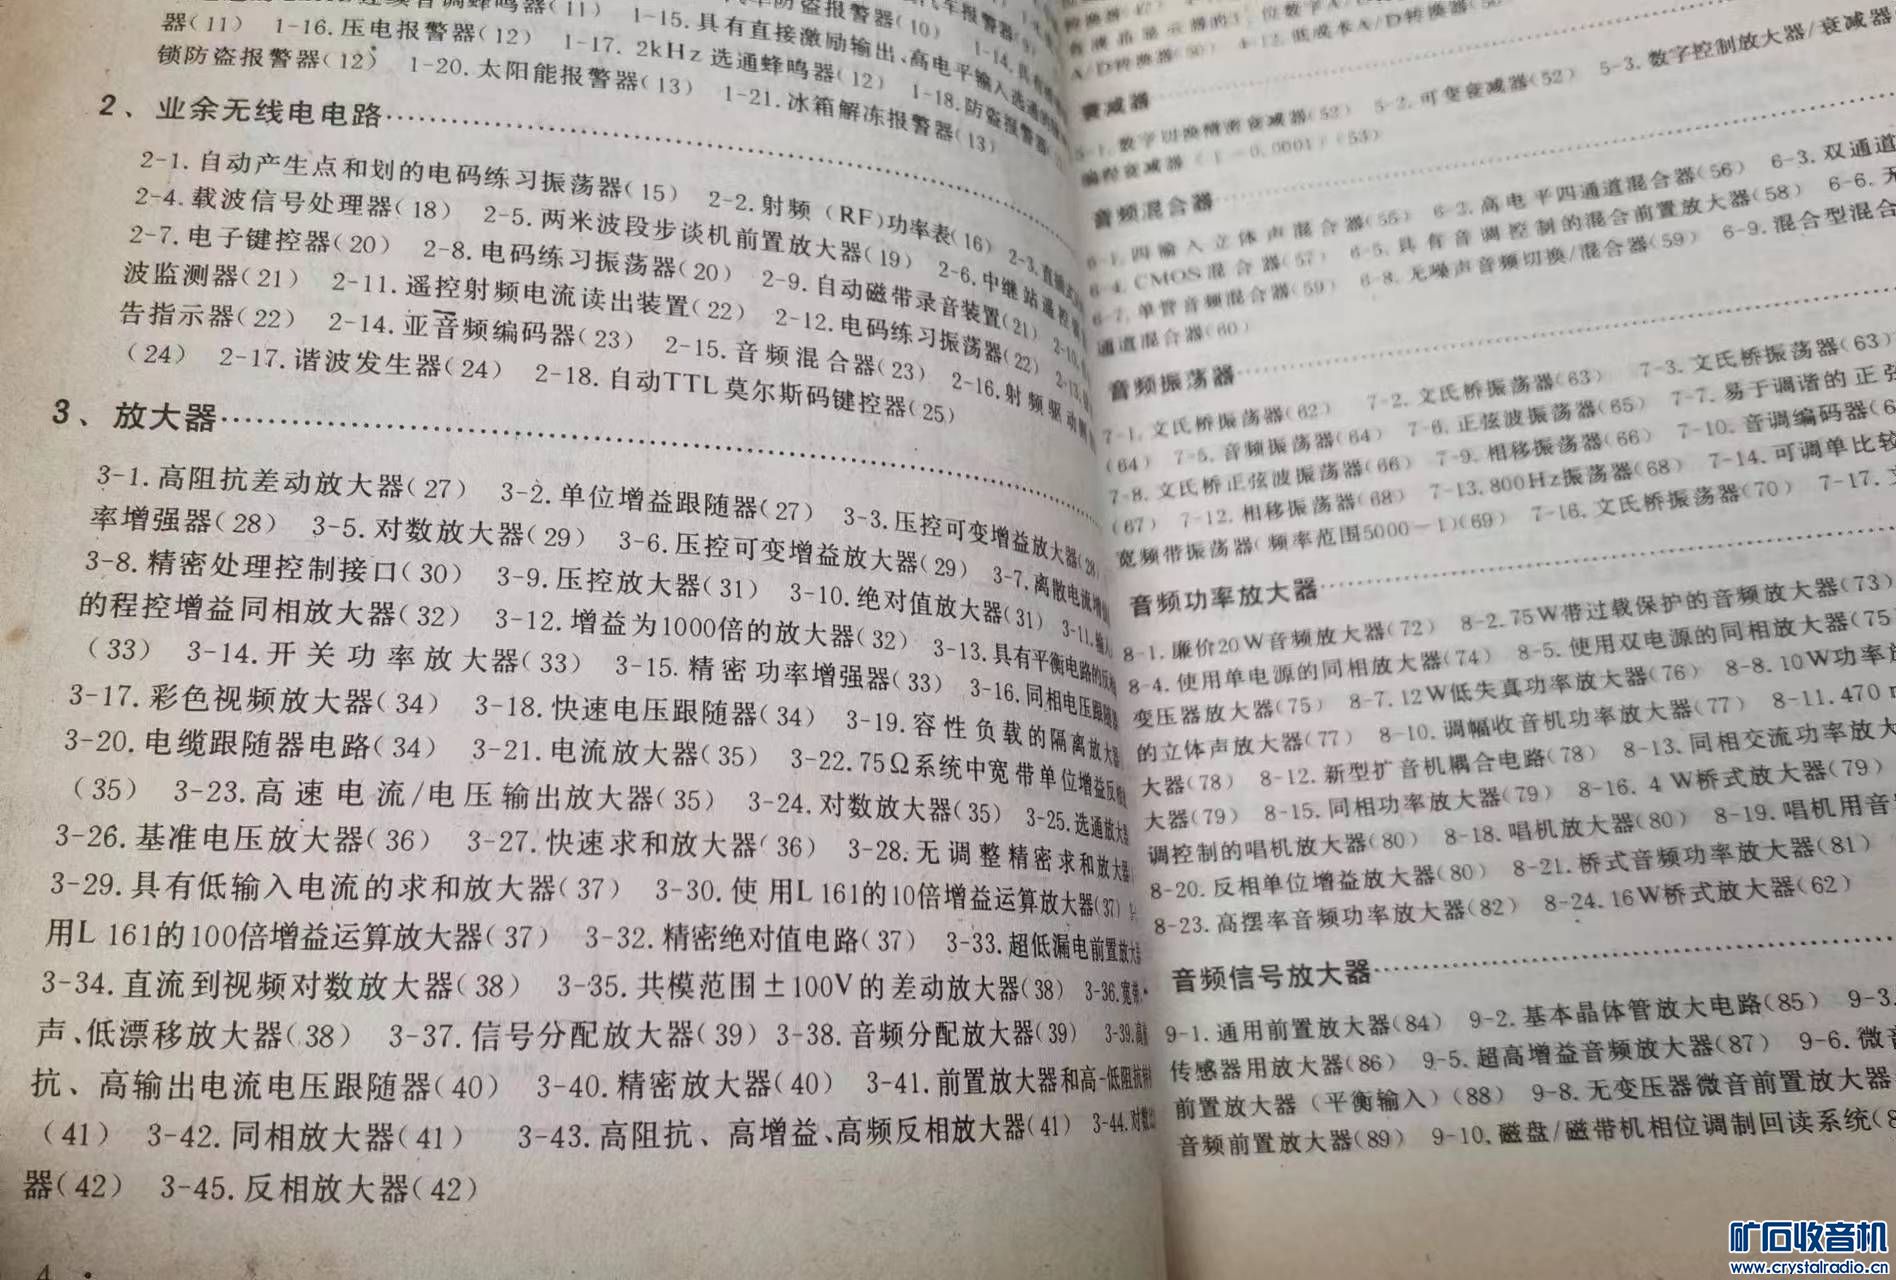 器(11) 1-16.压电报警器(12) 1-15.具有直接激励输出、高电平输入选通的
锁防盗报警器(12) 1-17.2kHz选通蜂鸣器(12) 1-18.防盗报警器
1-20.太阳能报警器(13) 1-21.冰箱解冻报警器(13)
2、业余无线电电路
2-1.自动产生点和划的电码练习振荡器(15) 2-2.射频(RF)功率表(16) 2-3.
2-4.载波信号处理器(18) 2-5.两米波段步谈机前置放大器(19) 2-6.中继站遥控
2-7.电子键控器(20) 2-8.电码练习振荡器(20) 2-9.自动磁带录音装置(21) 2-10.
波监测器(21) 2-11.遥控射频电流读出装置(22) 2-12.电码练习振荡器(22) 2-13.
告指示器(22) 2-14.亚音频编码器(23) 2-15.音频混合器(23) 2-16.射频驱动
(24) 2-17.谐波发生器(24) 2-18.自动TTL莫尔斯码键控器(25)
3、放大器
3-1.高阻抗差动放大器(27) 3-2.单位增益跟随器(27) 3-3.压控可变增益放大器(28)
率增强器(28) 3-5.对数放大器(29) 3-6.压控可变增益放大器(29) 3-7.离散电流
3-8.精密处理控制接口(30) 3-9.压控放大器(31) 3-10.绝对值放大器(31) 3-11.输入
的程控增益同相放大器(32) 3-12.增益为1000倍的放大器(32) 3-13.具有平衡电路的反相
(33) 3-14.开关功率放大器(33) 3-15.精密功率增强器(33) 3-16.同相电压跟随器
3-17.彩色视频放大器(34) 3-18.快速电压跟随器(34) 3-19.容性负载的隔离放大器
3-20.电缆跟随器电路(34) 3-21.电流放大器(35) 3-22.75Ω系统中宽带单位增益反相
(35) 3-23.高速电流/电压输出放大器(35) 3-24.对数放大器(35) 3-25.选通放大器
3-26.基准电压放大器(36) 3-27.快速求和放大器(36) 3-28.无调整精密求和放大器
3-29.具有低输入电流的求和放大器(37) 3-30.使用L161的10倍增益运算放大器(37)
用L 161的100倍增益运算放大器(37) 3-32.精密绝对值电路(37) 3-33.超低漏电前置放大器
3-34.直流到视频对数放大器(38) 3-35.共模范围±100V的差动放大器(38) 3-36.宽带、
声、低漂移放大器(38) 3-37.信号分配放大器(39) 3-38.音频分配放大器(39) 3-39.高
抗、高输出电流电压跟随器(40) 3-40.精密放大器(40) 3-41.前置放大器和高-低阻抗
(41) 3-42.同相放大器(41) 3-43.高阻抗、高增益、高频反相放大器(41) 3-44.对数
器(42) 3-45.反相放大器(42)
4 •
A/D转换器(50) 4-12.低成本A/D转换器
衰减器
5-1.数字切换精密衰减器(52) 5-2.可变衰减器(52) 5-3.数字控制放大器/衰减器
编程衰减器(1-0.0001)(53)
音频混合器
6-1.四输入立体声混合器(55) 6-2.高电平四通道混合器(56) 6-3.双通道
6-4.CMOS混合器(57) 6-5.具有音调控制的混合前置放大器(58) 6-6.无
6-7.单管音频混合器(59) 6-8.无噪声音频切换/混合器(59) 6-9.混合型混合
通道混合器(60)
音频振荡器
7-1.文氏桥振荡器(62) 7-2.文氏桥振荡器(63) 7-3.文氏桥振荡器(63)
(64) 7-5.音频振荡器(64) 7-6.正弦波振荡器(65) 7-7.易于调谐的正弦
7-8.文氏桥正弦波振荡器(66) 7-9.相移振荡器(66) 7-10.音调编码器(6
(67) 7-12.相移振荡器(68) 7-13.800Hz振荡器(68) 7-14.可调单比较
宽频带振荡器(频率范围5000-1)(69) 7-16.文氏桥振荡器(70) 7-17.
音频功率放大器
8-1.廉价20W音频放大器(72) 8-2.75W带过载保护的音频放大器(73)
8-4.使用单电源的同相放大器(74) 8-5.使用双电源的同相放大器(75
变压器放大器(75) 8-7.12W低失真功率放大器(76) 8-8.10W功率放
的立体声放大器(77) 8-10.调幅收音机功率放大器(77) 8-11.470
大器(78) 8-12.新型扩音机耦合电路(78) 8-13.同相交流功率放大
大器(79) 8-15.同相功率放大器(79) 8-16.4 W桥式放大器(79)
调控制的唱机放大器(80) 8-18.唱机放大器(80) 8-19.唱机用音
8-20.反相单位增益放大器(80) 8-21.桥式音频功率放大器(81)
8-23.高摆率音频功率放大器(82) 8-24.16W桥式放大器(62)
音频信号放大器
9-1.通用前置放大器(84) 9-2.基本晶体管放大电路(85) 9-3.
传感器用放大器(86) 9-5.超高增益音频放大器(87) 9-6.微音
前置放大器(平衡输入)(88) 9-8.无变压器微音前置放大器
音频前置放大器(89) 9-10.磁盘/磁带机相位调制回读系统(8
矿石收音机
www.crystalradio.cn